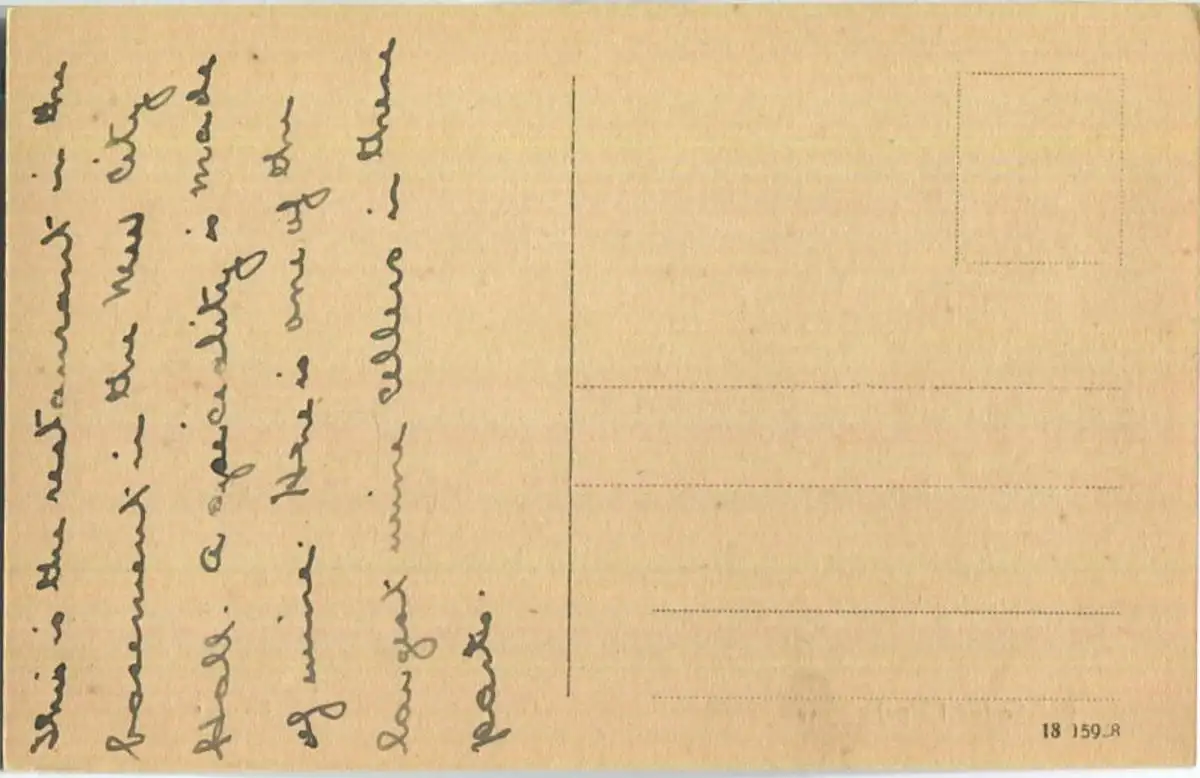 This is the restaurant in the
basement in the New City
Hall. A speciality is made
of wine. Here is one of the
largest wine cellers in these
parts.
18 159 8